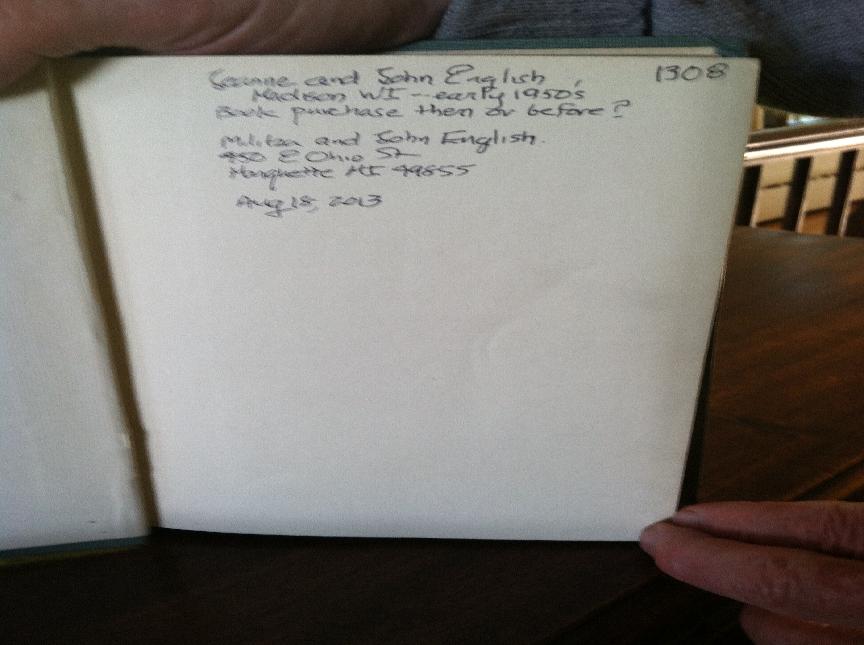 Jeanne and John English 1308
Madison WI - early 1950's
Book purchase then or before?
Militza and John English.
450 E Ohio St
Marquette MI 49855
Aug 18, 2013